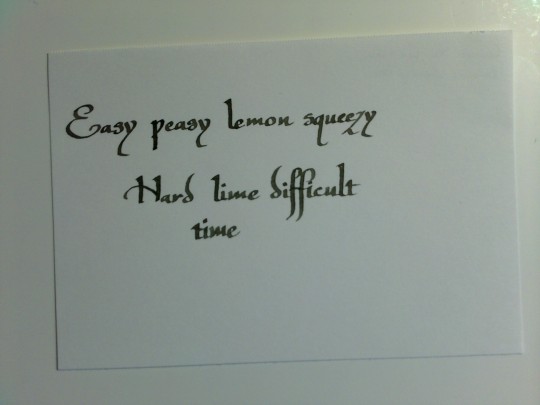 Easy peasy lemon squeezy
Hard lime difficult
time